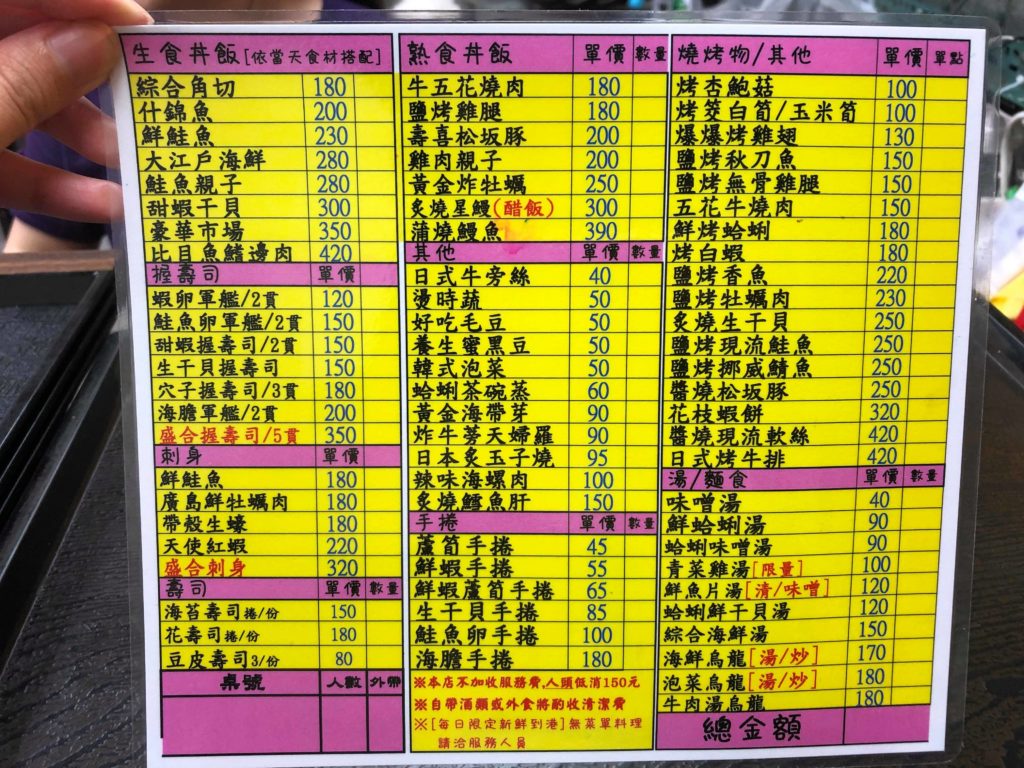 生食丼飯[依當天食材搭配]
綜合角切 180
什錦魚 200
鮮鮭魚 230
大江戶海鮮 280
鮭魚親子 280
甜蝦干貝 300
豪華市場 350
比目魚鰭邊肉 420
握壽司 單價
蝦卵軍艦/2貫 120
鮭魚卵軍艦/2貫 150
甜蝦握壽司/2貫 150
生干貝握壽司 150
穴子握壽司/3貫 180
海膽軍艦/2貫 200
盛合握壽司/5貫 350
刺身 單價
鮮鮭魚 180
廣島鮮牡蠣肉 180
帶殼生蠔 180
天使紅蝦 220
盛合刺身 320
壽司 單價 數量
海苔壽司捲/份 150
花壽司捲/份 180
豆皮壽司3/份 80
桌號 人數 外帶
熟食丼飯 單價 數量
牛五花燒肉 180
鹽烤雞腿 180
壽喜松坂豚 200
雞肉親子 200
黃金炸牡蠣 250
炙燒星鰻(醋飯) 300
蒲燒鰻魚 390
其他 單價 數量
日式牛旁絲 40
燙時蔬 50
好吃毛豆 50
養生蜜黑豆 50
韓式泡菜 50
蛤蜊茶碗蒸 60
黃金海帶芽 90
炸牛蒡天婦羅 90
日本炙玉子燒 95
辣味海螺肉 100
炙燒鱈魚肝 150
手捲 單價 數量
蘆筍手捲 45
鮮蝦手捲 55
鮮蝦蘆筍手捲 65
生干貝手捲 85
鮭魚卵手捲 100
海膽手捲 180
※本店不加收服務費,人頭低消150元
※自帶酒類或外食將酌收清潔費
※[每日限定新鮮到港]無菜單料理
請洽服務人員
燒烤物/其他 單價 單點
烤杏鮑菇 100
烤茭白筍/玉米筍 100
爆爆烤雞翅 130
鹽烤秋刀魚 150
鹽烤無骨雞腿 150
五花牛燒肉 150
鮮烤蛤蜊 180
烤白蝦 180
鹽烤香魚 220
鹽烤牡蠣肉 230
炙燒生干貝 250
鹽烤現流鮭魚 250
鹽烤挪威鯖魚 250
醬燒松坂豚 250
花枝蝦餅 320
醬燒現流軟絲 420
日式烤牛排 420
湯/麵食 單價 數量
味噌湯 40
鮮蛤蜊湯 90
蛤蜊味噌湯 90
青菜雞湯[限量] 100
鮮魚片湯[清/味噌] 120
蛤蜊鮮干貝湯 120
綜合海鮮湯 150
海鮮烏龍[湯/炒] 170
泡菜烏龍[湯/炒] 180
牛肉湯烏龍 180
總金額